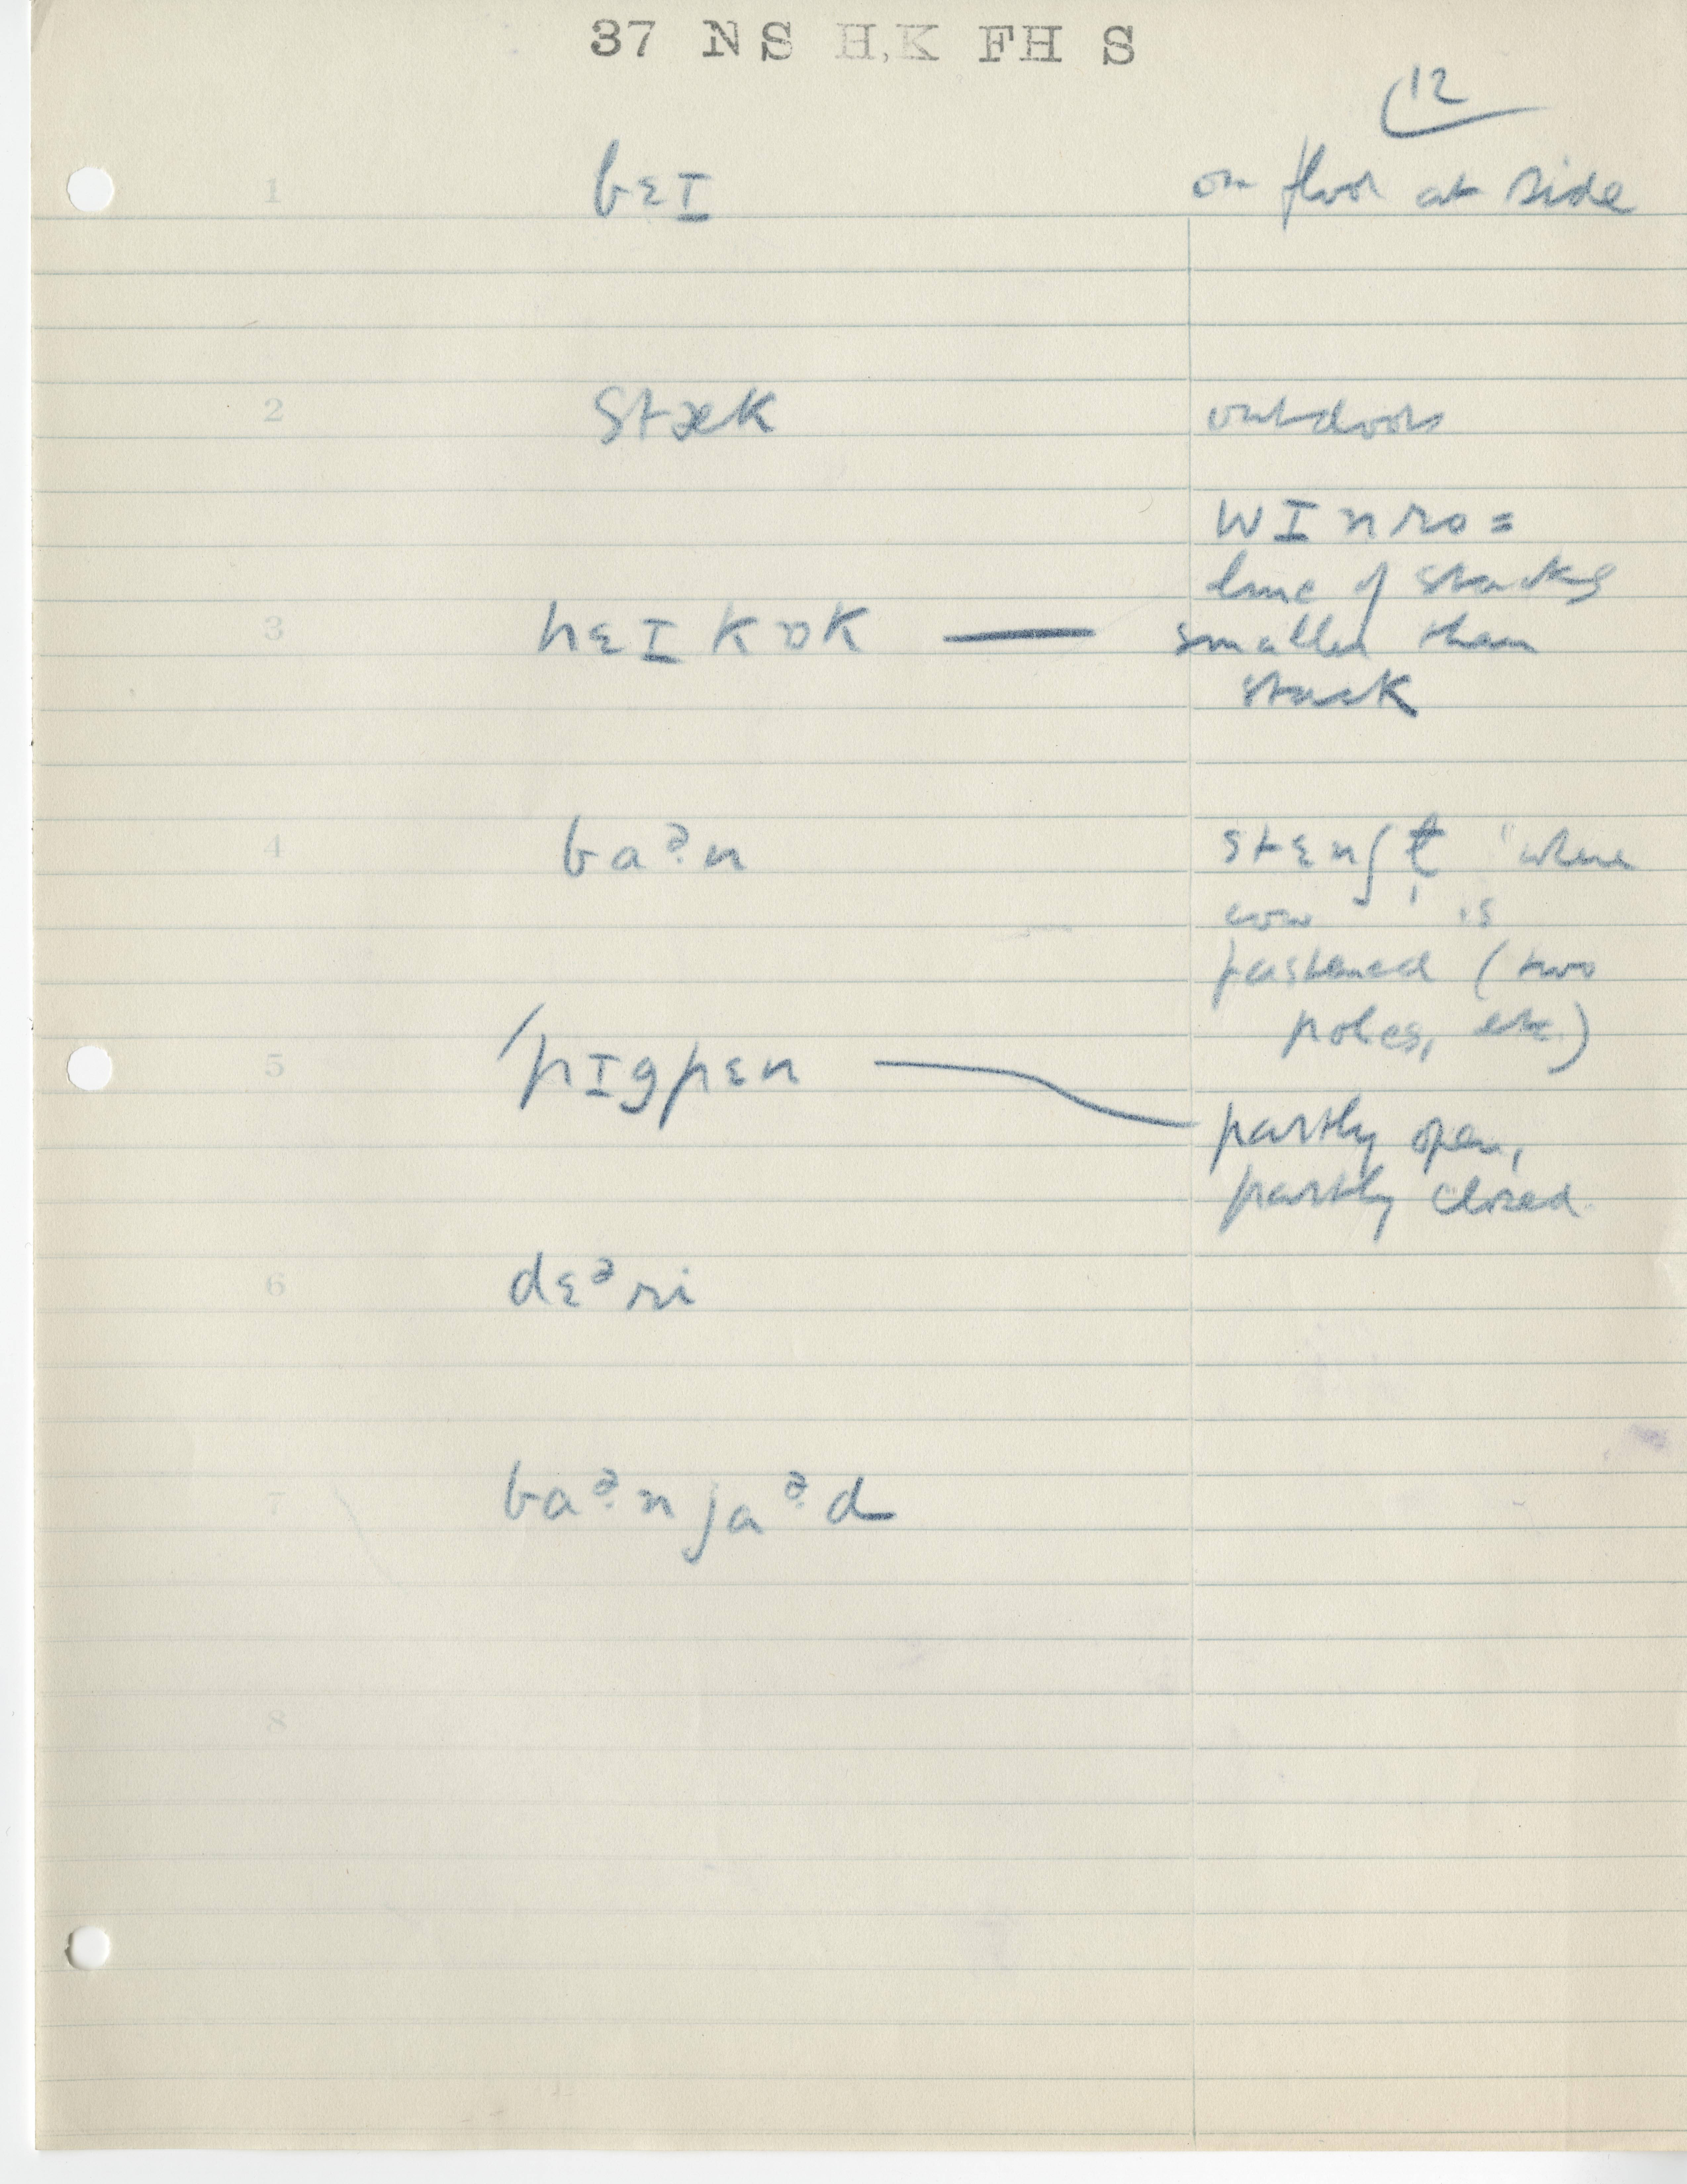 37 NS H.K FH S
12
1 bɛɪ on floor at side
2 stæk outdoors
wɪnro =
line of stacks
3 hɛɪ kɒk — smaller than
stack
4 baᵊ̣n stɛnʃt̬ "where
cow is
fastened (two
poles, etc)
5 'pɪgpɛn
partly open,
partly closed
6 dɛᵊri
7 baᵊ̣n jaᵊ̣d
8